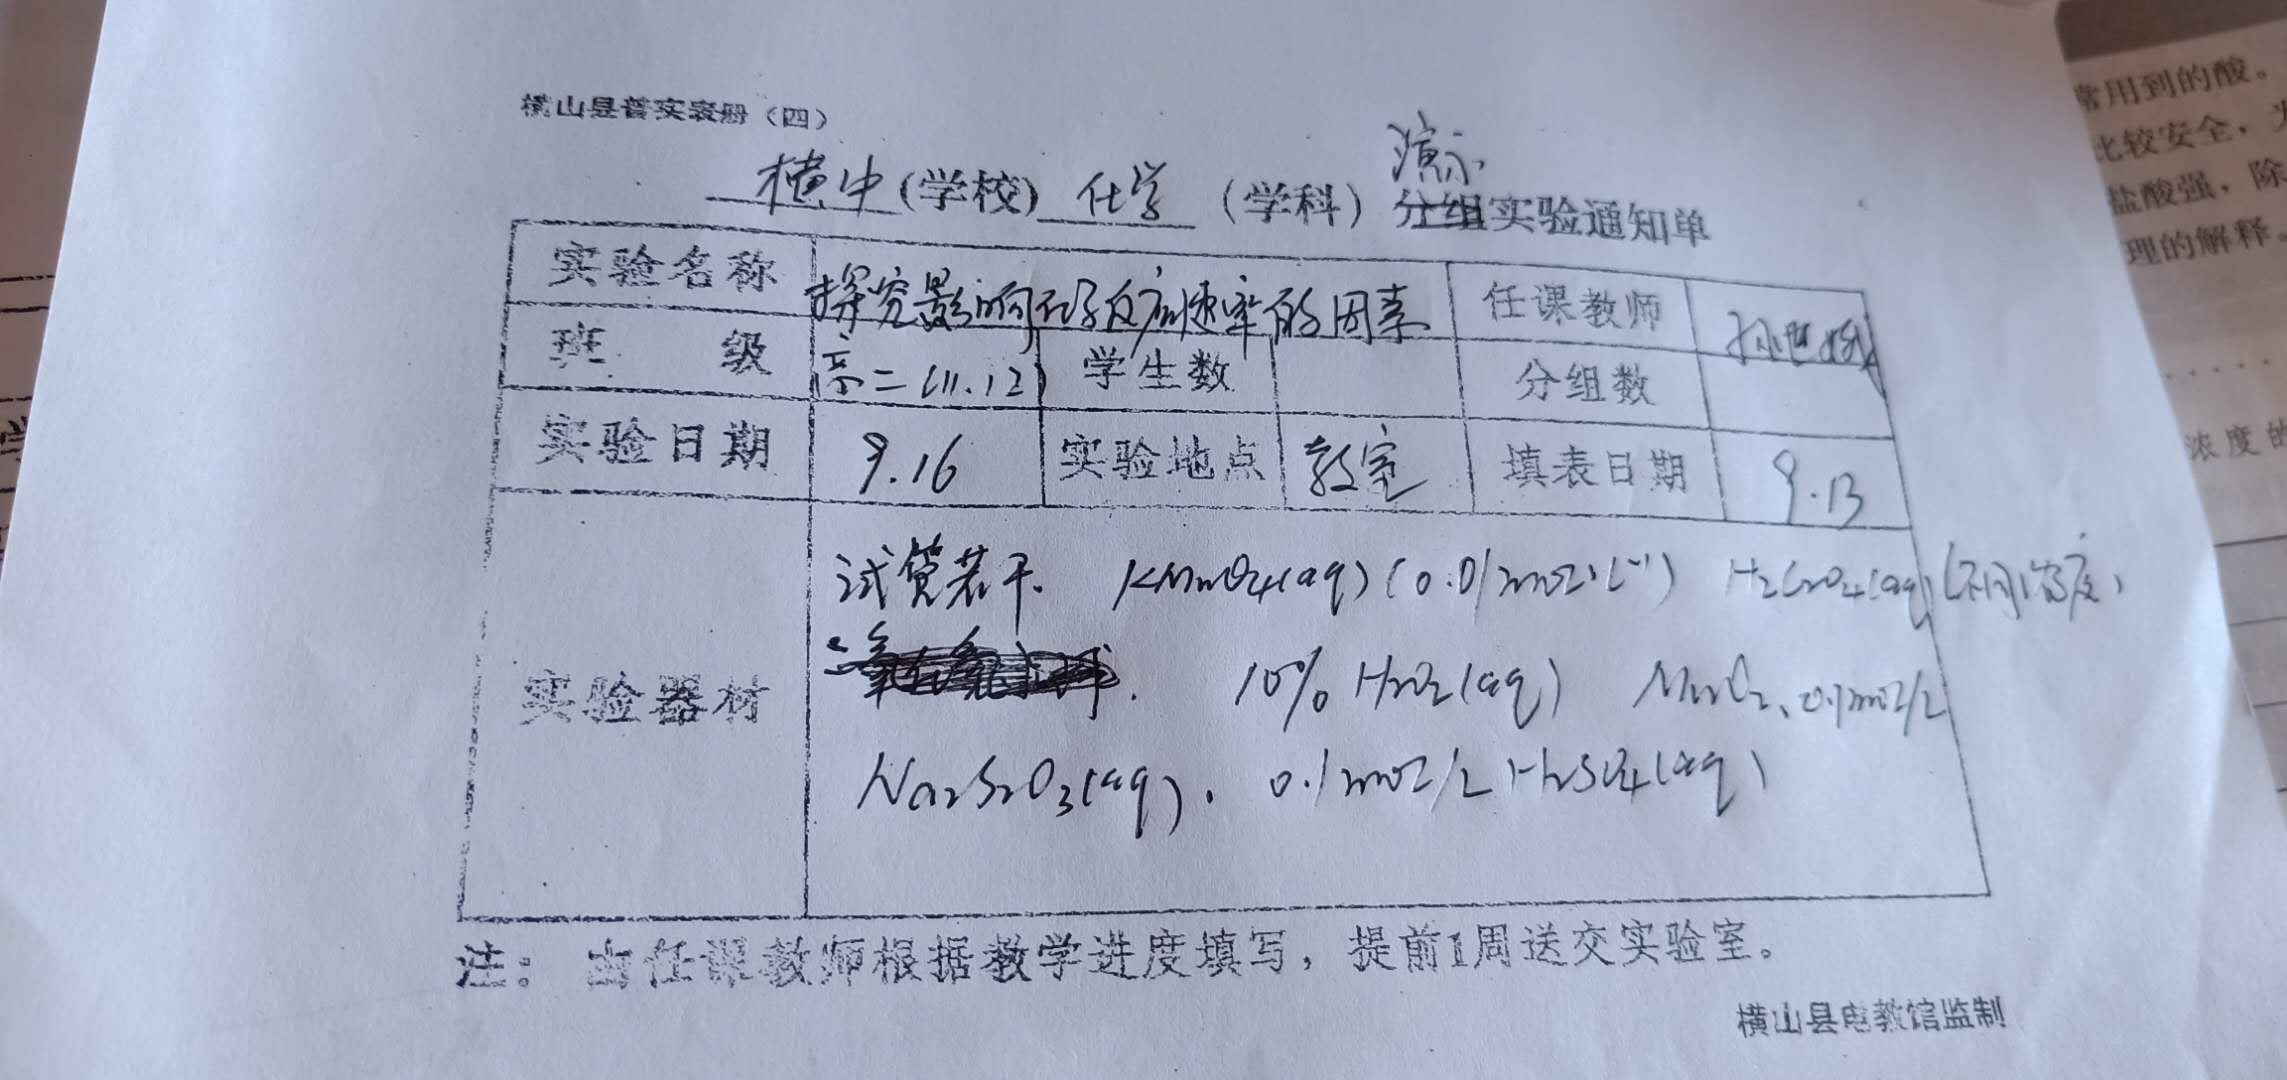 横山县普实表册（四）
横中(学校) 化学 (学科) 演示 分组实验通知单
实验名称 探究影响化学反应速率的因素 任课教师
班 级 高二(11.12) 学生数 分组数
实验日期 9.16 实验地点 教室 填表日期 9.13
试管若干. KMnO4(aq)(0.01mol·L⁻¹) H2C2O4(aq)(不同浓度)
10% H2O2(aq) MnO2、0.1mol/L
实验器材
Na2S2O3(aq). 0.1mol/L H2SO4(aq)
注: 由任课教师根据教学进度填写，提前1周送交实验室。
横山县电教馆监制
常用到的酸。
比较安全，
盐酸强，除
理的解释。
浓度的